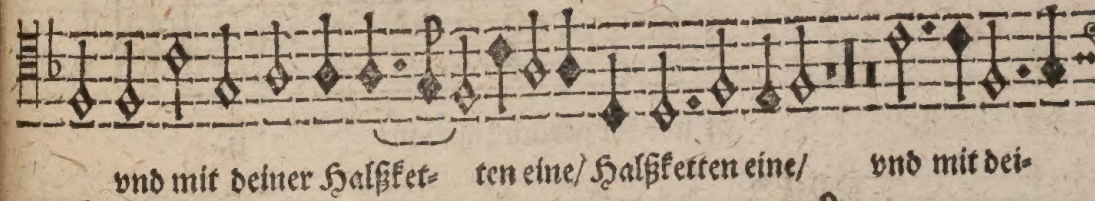 vnd mit deiner Halßket⸗ ten eine/ Halßketten eine/ vnd mit dei⸗